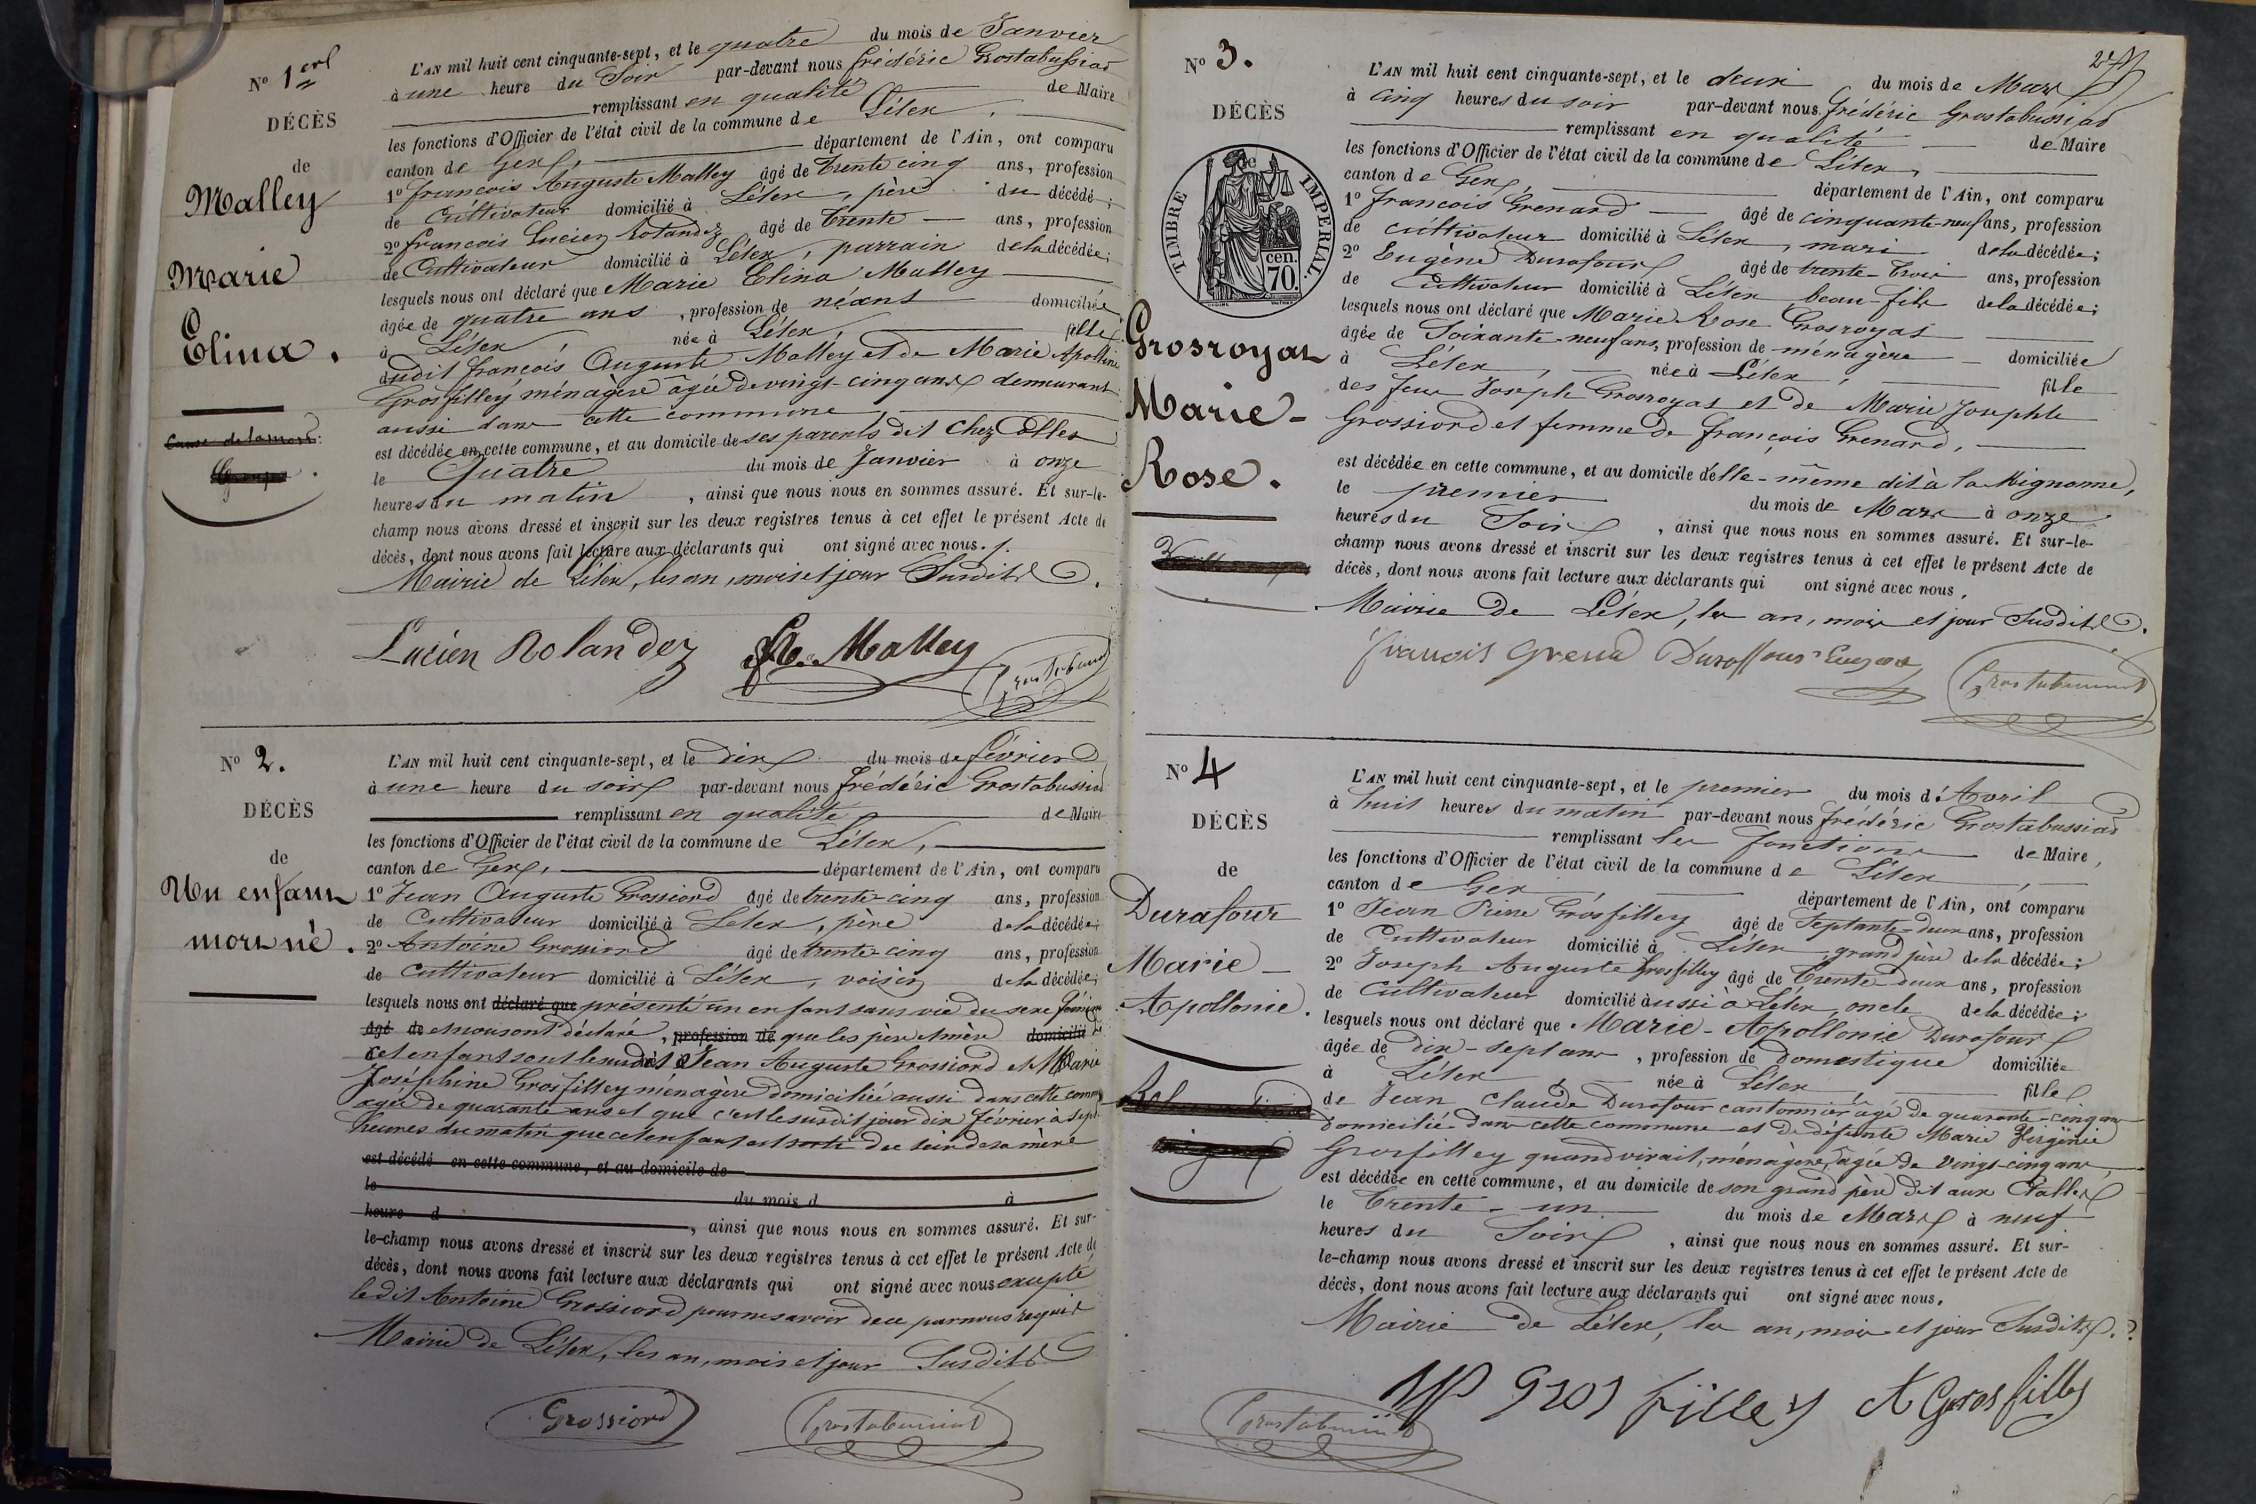 N° 1er
DÉCÈS
de
Malley
Marie
Elina.
Cause de la mort:
L'AN mil huit cent cinquante-sept, et le quatre du mois de Janvier
à une heure du Soir par-devant nous frédéric Grostabussiat
remplissant en qualité de Maire
les fonctions d'Officier de l'état civil de la commune de Lélex,
canton de Gex, département de l'Ain, ont comparu
1° françois Auguste Malley âgé de trente cinq ans, profession
de Cultivateur domicilié à Lélex, père du décédé;
2° françois Lucien Rolandez âgé de trente ans, profession
de Cultivateur domicilié à Lélex, parrain de la décédée;
lesquels nous ont déclaré que Marie Elina Malley
âgée de quatre ans, profession de néant domiciliée
à Lélex, née à Lélex, fille
dudit françois Auguste Malley et de Marie Apolline
Grosfilley ménagère âgée de vingt-cinq ans demeurant
aussi dans cette commune
est décédée en cette commune, et au domicile de ses parents dit Chez
le Quatre du mois de Janvier à onze
heures du matin, ainsi que nous nous en sommes assuré. Et sur-le-
champ nous avons dressé et inscrit sur les deux registres tenus à cet effet le présent Acte de
décès, dont nous avons fait lecture aux déclarants qui ont signé avec nous.
Mairie de Lélex, les an, mois et jour Susdits.
Lucien Rolandez Malley Grostabussiat
N° 2.
DÉCÈS
de
Un enfant
mort né.
L'AN mil huit cent cinquante-sept, et le dix du mois de février
à une heure du soir par-devant nous frédéric Grostabussiat
remplissant en qualité de Maire
les fonctions d'Officier de l'état civil de la commune de Lélex,
canton de Gex, département de l'Ain, ont comparu
1° Jean Auguste Grossiord âgé de trente-cinq ans, profession
de Cultivateur domicilié à Lélex, père de la décédée;
2° Antoine Grossiord âgé de trente-cinq ans, profession
de Cultivateur domicilié à Lélex, voisin de la décédée;
lesquels nous ont déclaré que présenté un enfant sans vie du sexe féminin
âgé de et nous ont déclaré, profession de que les père et mère domicilié de
cet enfant sont le susdit Jean Auguste Grossiord et Marie
Joséphine Grosfilley ménagère domiciliée aussi dans cette commune
âgée de quarante ans et que c'est le susdit jour dix février à sept
heures du matin que cet enfant est sorti du sein de sa mère
est décédé en cette commune, et au domicile de
le du mois d à
heure d, ainsi que nous nous en sommes assuré. Et sur-
le-champ nous avons dressé et inscrit sur les deux registres tenus à cet effet le présent Acte de
décès, dont nous avons fait lecture aux déclarants qui ont signé avec nous excepté
ledit Antoine Grossiord pour ne savoir de ce par nous requis
Mairie de Lélex, les an, mois et jour Susdits
Grossiord Grostabussiat
N° 3.
DÉCÈS
de
TIMBRE IMPERIAL.
70. cen.
Grosroyat
Marie-
Rose.
L'AN mil huit cent cinquante-sept, et le deux du mois de Mars
à cinq heures du soir par-devant nous frédéric Grostabussiat
remplissant en qualité de Maire
les fonctions d'Officier de l'état civil de la commune de Lélex,
canton de Gex, département de l'Ain, ont comparu
1° françois Grenard âgé de cinquante-neuf ans, profession
de cultivateur domicilié à Lélex, mari de la décédée;
2° Eugène Durafour âgé de trente-trois ans, profession
de Cultivateur domicilié à Lélex beau-fils de la décédée;
lesquels nous ont déclaré que Marie Rose Grosroyat
âgée de Soixante-neuf ans, profession de ménagère domiciliée
à Lélex, née à Lélex, fille
des feus Joseph Grosroyat et de Marie Josephte
Grossiord et femme de françois Grenard,
est décédée en cette commune, et au domicile d'elle-même dit à la Mignonne,
le premier du mois de Mars à onze
heures du Soir, ainsi que nous nous en sommes assuré. Et sur-le-
champ nous avons dressé et inscrit sur les deux registres tenus à cet effet le présent Acte de
décès, dont nous avons fait lecture aux déclarants qui ont signé avec nous.
Mairie de Lélex, les an, mois et jour Susdits.
françois Grenard Duraffour Eugene Grostabussiat
N° 4
DÉCÈS
de
Durafour
Marie-
Apollonie.
L'AN mil huit cent cinquante-sept, et le premier du mois d'Avril
à huit heures du matin par-devant nous frédéric Grostabussiat
remplissant les fonctions de Maire,
les fonctions d'Officier de l'état civil de la commune de Lélex,
canton de Gex, département de l'Ain, ont comparu
1° Jean Pierre Grosfilley âgé de Septante-deux ans, profession
de Cultivateur domicilié à Lélex, grand père de la décédée;
2° Joseph Auguste Grosfilley âgé de trente-deux ans, profession
de Cultivateur domicilié aussi à Lélex, oncle de la décédée;
lesquels nous ont déclaré que Marie-Apollonie Durafour
âgée de dix-sept ans, profession de Domestique domiciliée
à Lélex, née à Lélex, fille
de Jean Claude Durafour cantonnier âgé de quarante-cinq ans
Domicilié dans cette commune et de défunte Marie Virginie
Grosfilley quand vivait, ménagère, âgée de vingt-cinq ans,
est décédée en cette commune, et au domicile de son grand père dit aux
le trente-un du mois de Mars à neuf
heures du Soir, ainsi que nous nous en sommes assuré. Et sur-
le-champ nous avons dressé et inscrit sur les deux registres tenus à cet effet le présent Acte de
décès, dont nous avons fait lecture aux déclarants qui ont signé avec nous.
Mairie de Lélex, les an, mois et jour Susdits.
Grosfilley A Grosfilley
Grostabussiat